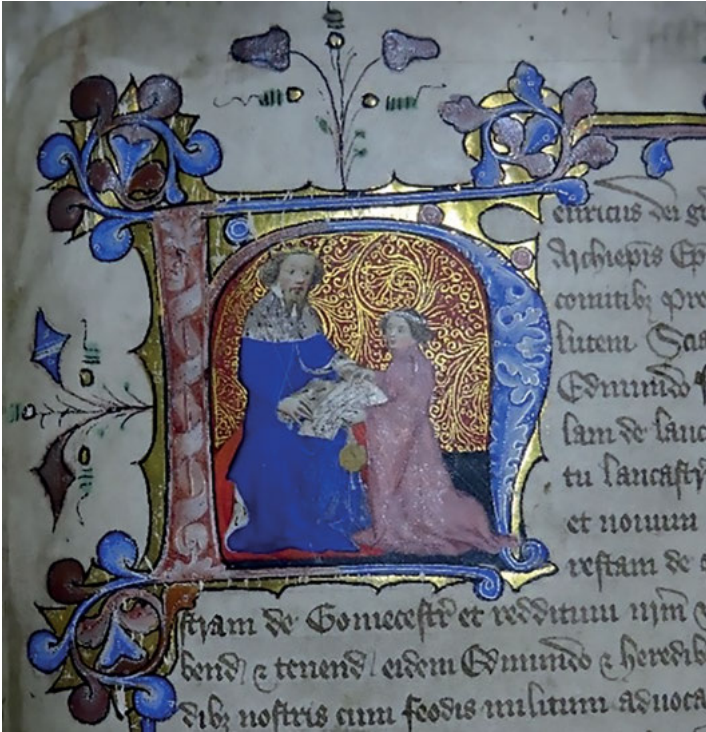 Henricus dei gr
Archiepis Ep
comitibz Pre
lutem Scia
Edmundo
lam de lanc
tu lancastr
et nouum
restam de
stram de Gomecestr et redditum
bend & tenend eidem Edmundo & heredib
dibz nostris cum feodis militum aduoca